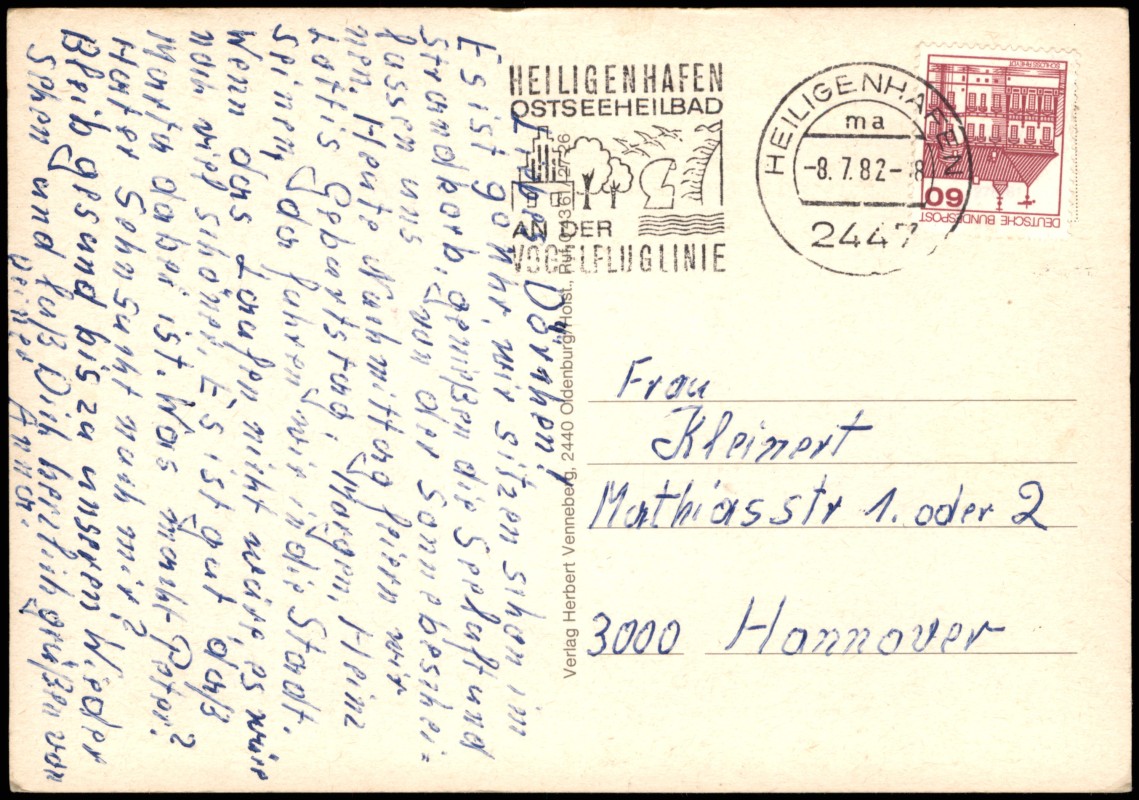 HEILIGENHAFEN
OSTSEEHEILBAD
AN DER
VOGELFLUGLINIE
HEILIGENHAFEN
ma
-8.7.82-8
2447
60
DEUTSCHE BUNDESPOST
Liebes Dörchen!
Es ist 9 Uhr, wir sitzen schon im
Strandkorb, genießen die Seeluft und
lassen uns von der Sonne beschei=
nen. Heute Nachmittag feiern wir
Lottis Geburtstag, Morgen, Heinz
seinen, dach fahren wir in die Stadt.
Wenn das Laufen nicht wäre, es wäre
noch viel schöner. Es ist gut, daß
Marta dabei ist. Was macht Peter?
Hat er Sehnsucht nach mir?
Bleib gesund bis zu unseren Wieder
sehen und laß Dich herzlich grüßen von
Deiner Anna.
Verlag Herbert Venneberg, 2440 Oldenburg/Holst., Ruf 04361/27 26
Frau
Kleinert
Mathiasstr 1. oder 2
3000 Hannover